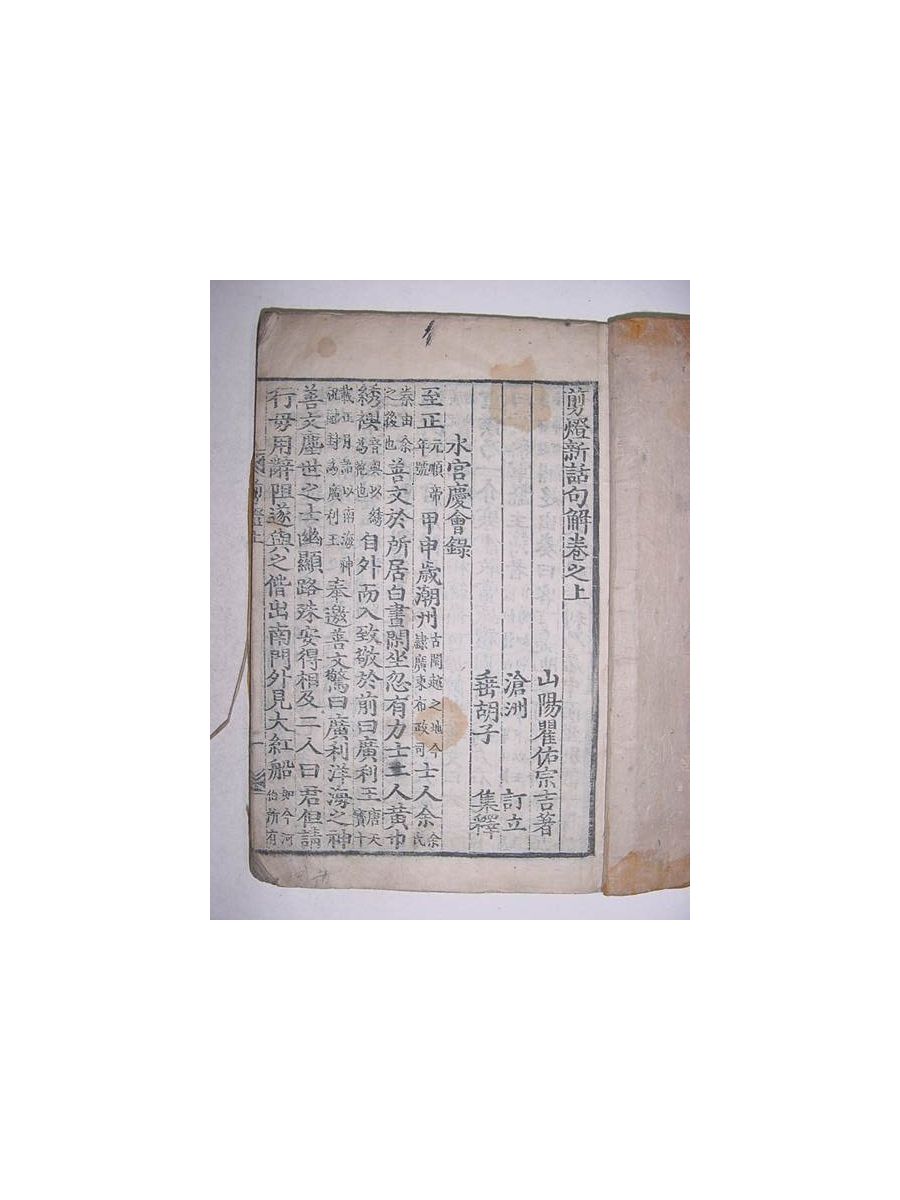 剪燈新話句解卷之上
山陽瞿佑宗吉著
滄洲 訂立
垂胡子 集釋
水宮慶會錄
至正元順帝年號甲申歲潮州古閩越之地今隷廣東布政司士人余余氏
秦由余之後也善文於所居白晝閑坐忽有力士二人黃巾
綉襖音奧以綉爲袍也自外而入致敬於前曰廣利王唐天寶十
載正月詔以南海神封爲廣利王奉邀善文驚曰廣利洋海之神
善文塵世之士幽顯路殊安得相及二人曰君但請
行毋用辭阻遂與之偕出南門外見大紅船如今河伯所有